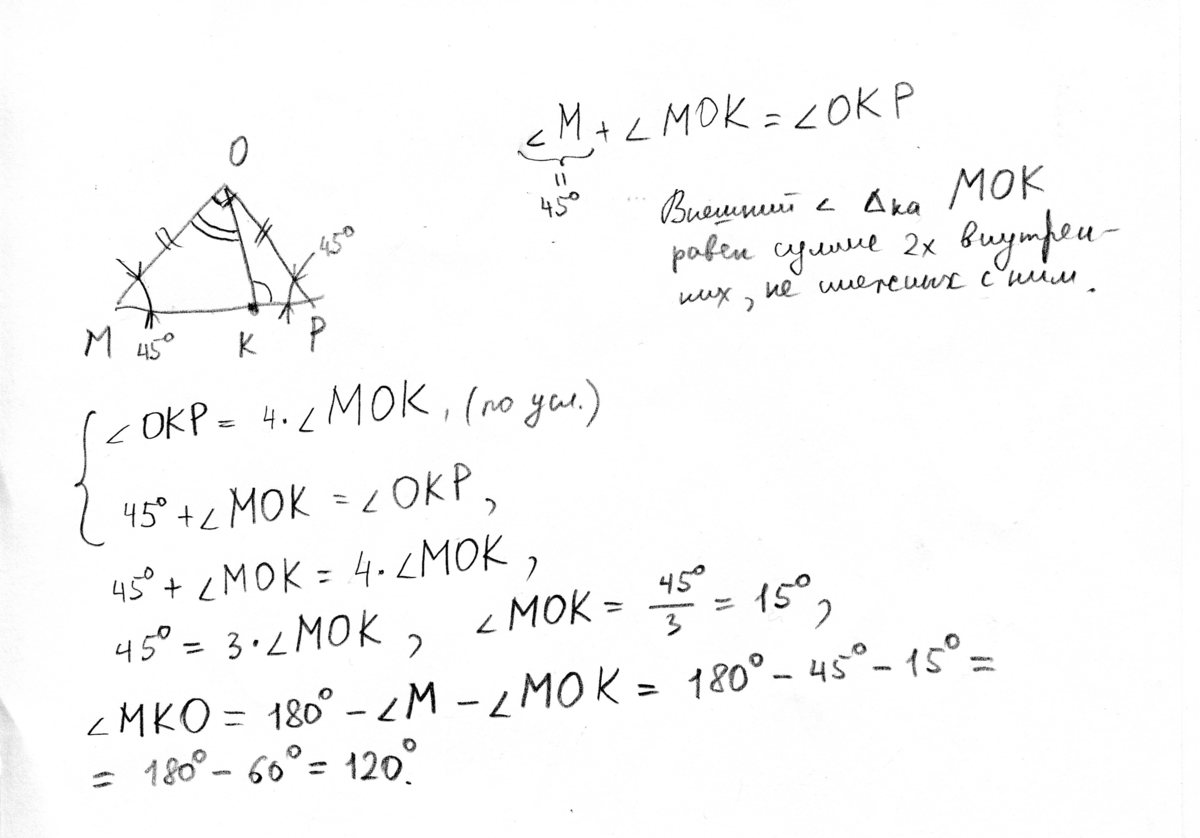 O
45°
M 45° K P
∠M + ∠MOK = ∠OKP
=
45°
Внешний ∠ Δка MOK
равен сумме 2х внутрен-
них, не смежных с ним.
∠OKP = 4·∠MOK, (по усл.)
45° + ∠MOK = ∠OKP,
45° + ∠MOK = 4·∠MOK,
45° = 3·∠MOK, ∠MOK = 45°/3 = 15°,
∠MKO = 180° - ∠M - ∠MOK = 180° - 45° - 15° =
= 180° - 60° = 120°.